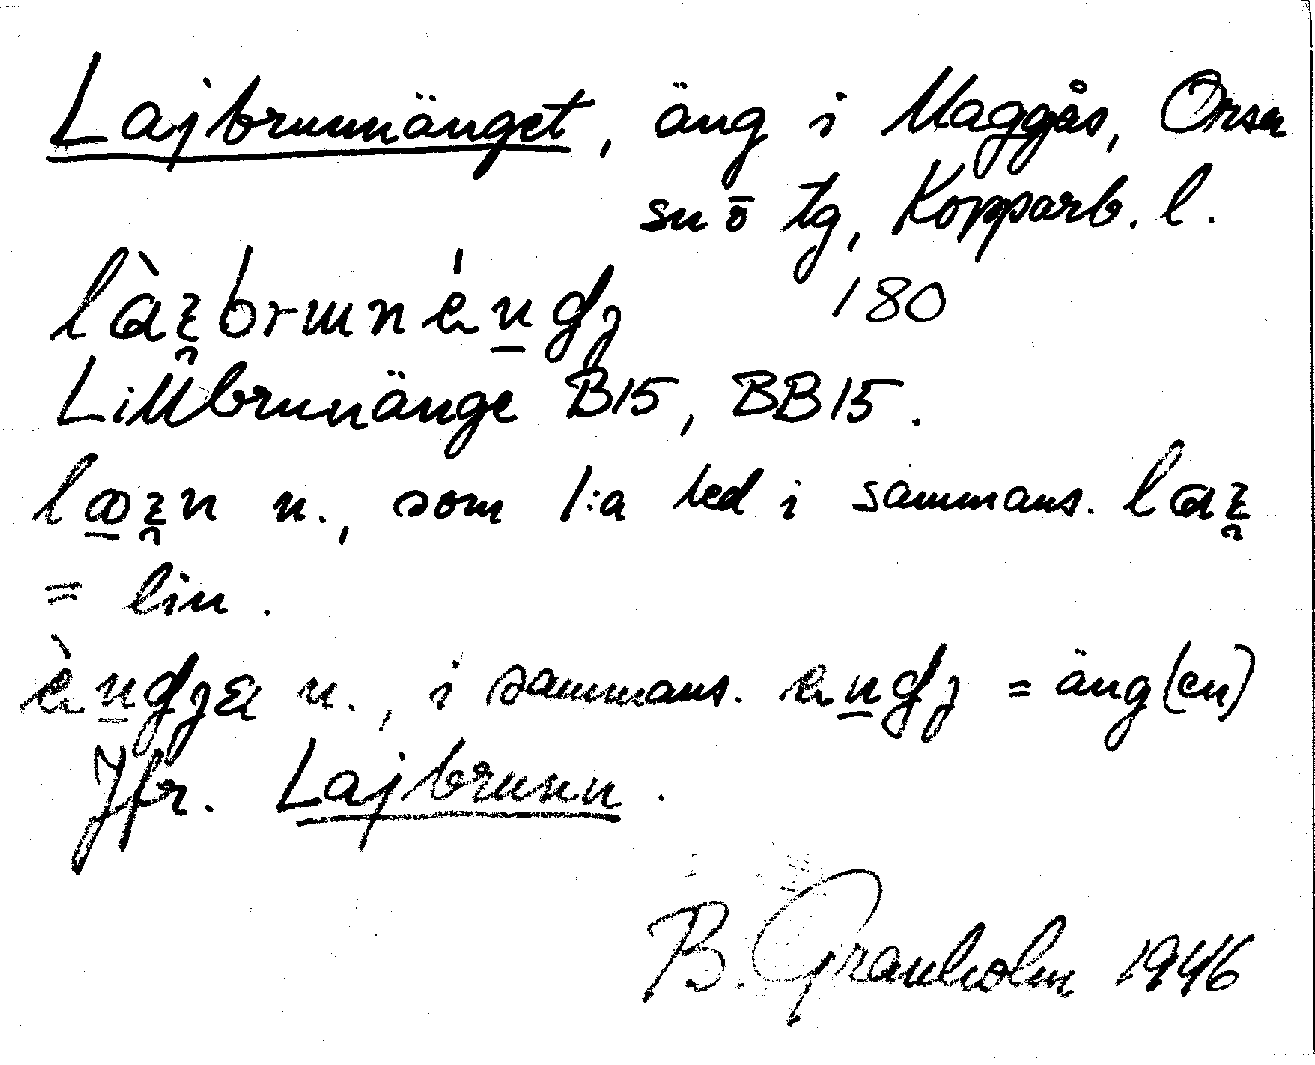 Lajbrunnänget, äng i Maggås, Orsa
sn ö tg, Kopparb. l.
180
Lillbrunänge B15, BB15.
n., som 1:a led i sammans.
= lin.
n., i sammans. = äng(en)
Jfr. Lajbrunn.
B. Granholm 1946